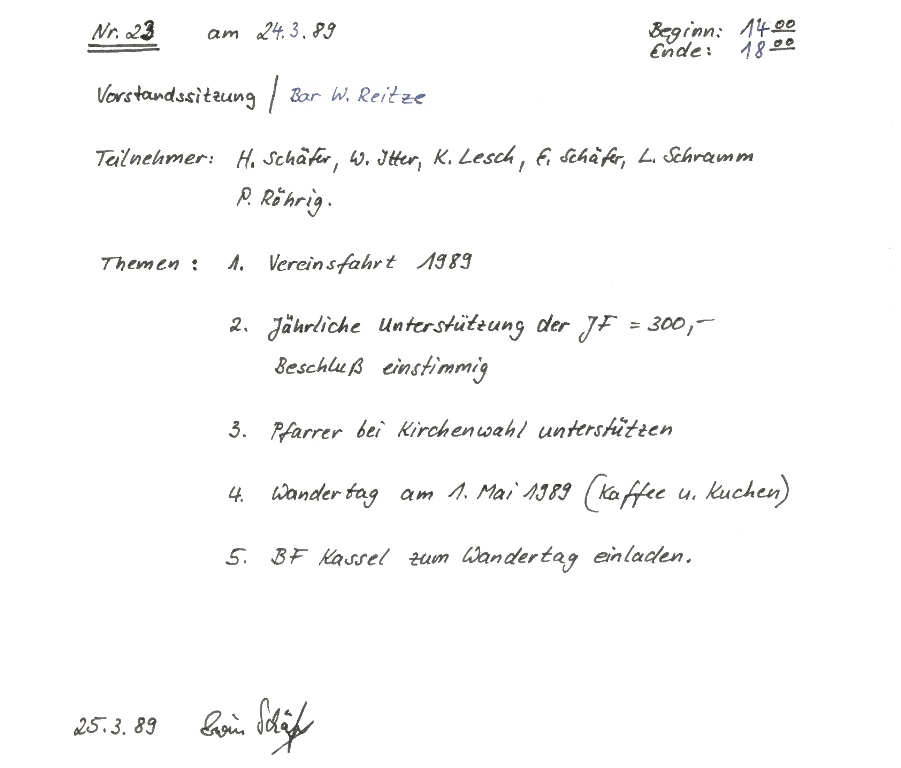 Nr. 23 am 24.3.89 Beginn: 14⁰⁰
Ende: 18⁰⁰
Vorstandssitzung / Bar W. Reitze
Teilnehmer: H. Schäfer, W. Itter, K. Lesch, E. Schäfer, L. Schramm
P. Röhrig.
Themen: 1. Vereinsfahrt 1989
2. Jährliche Unterstützung der JF = 300,-
Beschluß einstimmig
3. Pfarrer bei Kirchenwahl unterstützen
4. Wandertag am 1. Mai 1989 (Kaffee u. Kuchen)
5. BF Kassel zum Wandertag einladen.
25.3.89 Erwin Schäfer